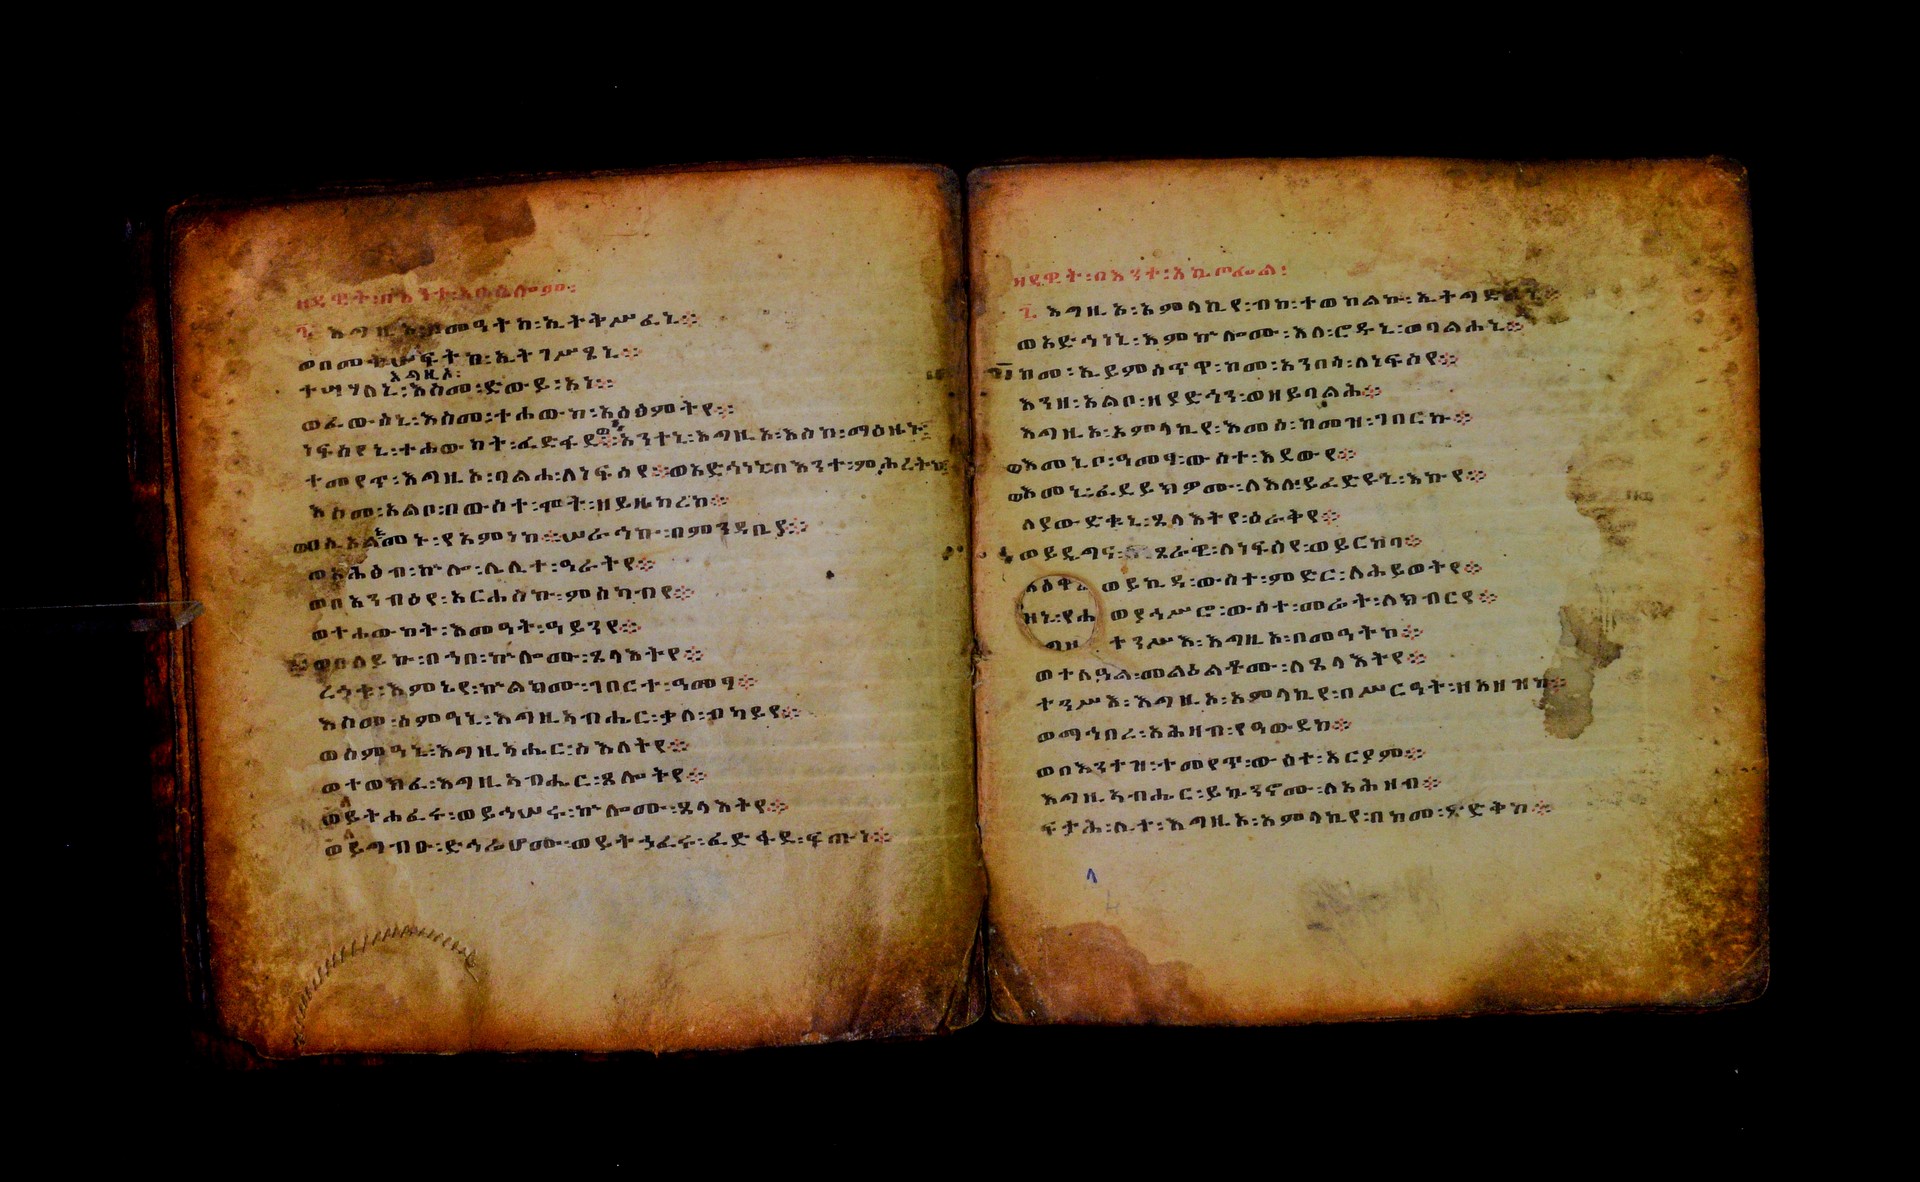 ዘዳዊት፡በእንተ፡
፮ እግዚኦ፡በመዓትከ፡ኢትቅሥፈኒ
ወበመቅሠፍትከ፡ኢትገሥጸኒ
እግዚኦ፡
ተሣሃለኒ፡እስመ፡ድውይ፡አነ
ወፈውሰኒ፡እስመ፡ተሐውከ፡አዕፅምትየ
ነፍስየኒ፡ተሐውከት፡ፈድፋደ፡ወአንተኒ፡እግዚኦ፡እስከ፡ማዕዜኑ
ተመየጥ፡እግዚኦ፡ባልሐ፡ለነፍስየ፡ወአድኅነኒ፡በእንተ፡ምሕረትከ
እስመ፡አልቦ፡በውስተ፡ሞት፡ዘይዜከረከ
ወበሲኦልኒ፡መኑ፡የአምነከ፡ሠራኅኩ፡በምንዳቤያ
ወአሐፅብ፡ኵሎ፡ሌሊተ፡ዓራትየ
ወበአንብዕየ፡አርሐስኩ፡ምስካብየ
ወተሐውከት፡እመዓት፡ዓይንየ
ወበለይኩ፡በኀበ፡ኵሎሙ፡ጸላእትየ
ረኀቁ፡እምኔየ፡ኵልክሙ፡ገበርተ፡ዓመፃ
እስመ፡ሰምዓኒ፡እግዚአብሔር፡ቃለ፡ብካይየ
ወሰምዓኒ፡እግዚአብሔር፡ስእለትየ
ወተወክፈ፡እግዚአብሔር፡ጸሎትየ
ወይትሐፈሩ፡ወይኅሥሩ፡ኵሎሙ፡ጸላእትየ
ወይግብዑ፡ድኅሬሆሙ፡ወይትኃፈሩ፡ፈድፋደ፡ፍጡነ
ዘዳዊት፡በእንተ፡
፯ እግዚኦ፡አምላኪየ፡ብከ፡ተወከልኩ፡ኢትግድፈኒ
ወአድኅነኒ፡እምኵሎሙ፡እለ፡ሮዱኒ፡ወባልሐኒ
ከመ፡ኢይምስጥዋ፡ከመ፡አንበሳ፡ለነፍስየ
እንዘ፡አልቦ፡ዘያድኅን፡ወዘይባልሕ
እግዚኦ፡አምላኪየ፡እመሰ፡ከመዝ፡ገበርኩ
ወእመኒቦ፡ዓመፃ፡ውስተ፡እደውየ
ወእመኒ፡ፈደይክዎሙ፡ለእለ፡ይፈድዩኒ፡እኩየ
ለያውድቁኒ፡ጸላእትየ፡ዕራቅየ
ወይዴግና፡ጸራዊ፡ለነፍስየ፡ወይርከባ
ወይኪዳ፡ውስተ፡ምድር፡ለሕይወትየ
ወያኅሥሮ፡ውስተ፡መሬት፡ለክብርየ
ተንሥእ፡እግዚኦ፡በመዓትከ
ወተለዓል፡መልዕልቶሙ፡ለጸላእትየ
ተንሥእ፡እግዚኦ፡አምላኪየ፡በሥርዓት፡ዘአዘዝከ
ወማኅበረ፡አሕዛብ፡የዓውደከ
ወበእንተዝ፡ተመየጥ፡ውስተ፡አርያም
እግዚአብሔር፡ይኴንኖሙ፡ለአሕዛብ
ፍታሕ፡ሊተ፡እግዚኦ፡አምላኪየ፡በከመ፡ጽድቅከ